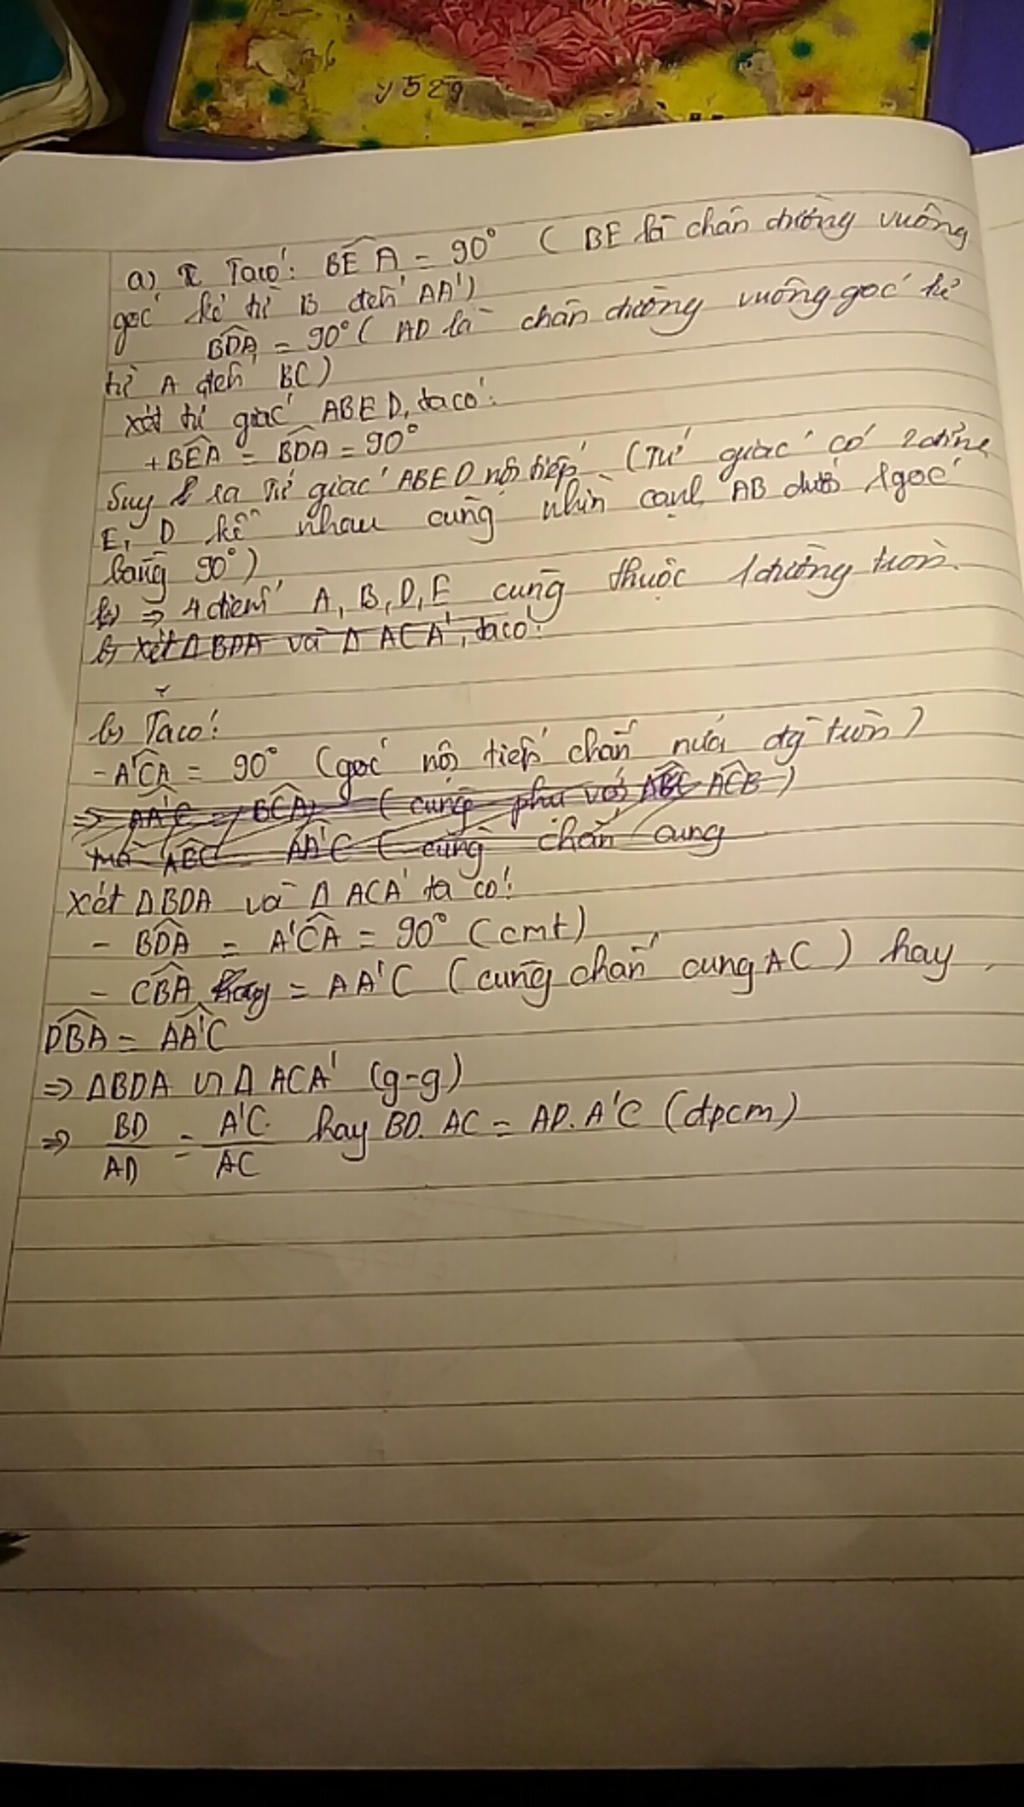 y529
a) Ta có: BÊA = 90° ( BE là chân đường vuông
góc kẻ từ B đến AA')
BDA = 90° ( AD là chân đường vuông góc kẻ
từ A đến BC)
xét tứ giác ABED, ta có:
+ BEA = BDA = 90°
Suy ra Tứ giác ABED nội tiếp (Tứ giác có 2 đỉnh
E, D kề nhau cùng nhìn cạnh AB dưới 1 góc
bằng 90°)
b) => 4 điểm A, B, D, E cùng thuộc 1 đường tròn.
b) xét Δ BDA và Δ ACA', ta có:
b) Ta có:
- A'CA = 90° (góc nội tiếp chắn nửa đg tròn)
=> AA'C = BCA ( cùng phụ với ABC ACB )
mà ABC = AA'C ( cùng chắn cung
xét ΔBDA và Δ ACA' ta có:
- BDA = A'CA = 90° (cmt)
- CBA = AA'C (cùng chắn cung AC ) hay
DBA = AA'C
=> ΔBDA ∽ Δ ACA' (g-g)
=> BD/AD = A'C/AC hay BD. AC = AD. A'C (đpcm)